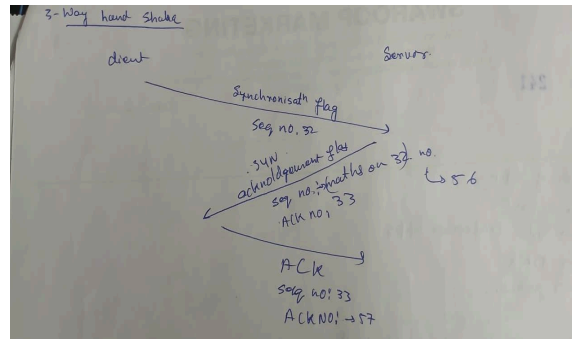 3-Way hand shake
client
Server.
Synchronisath flag
Seq no. 32
SYN
acknoldgement flag
seq no. :- (maths on 32) no.
↳ 56
ACK no: 33
ACK
seq no: 33
ACK NO: → 57